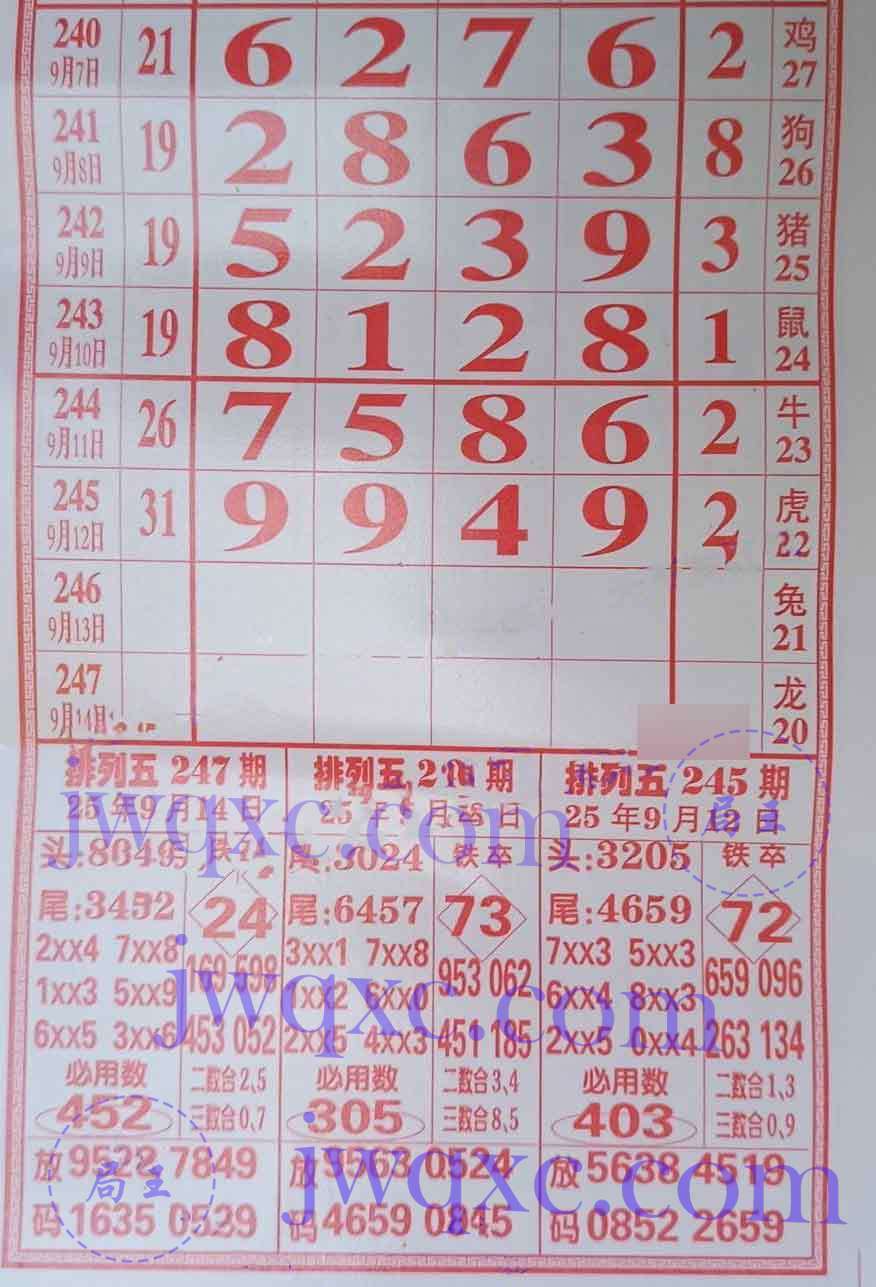 240 9月7日 21 6 2 7 6 2 鸡 27
241 9月8日 19 2 8 6 3 8 狗 26
242 9月9日 19 5 2 3 9 3 猪 25
243 9月10日 19 8 1 2 8 1 鼠 24
244 9月11日 26 7 5 8 6 2 牛 23
245 9月12日 31 9 9 4 9 2 虎 22
246 9月13日 兔 21
247 9月14日 龙 20
排列五 247 期 排列五 期 排列五 245 期
25 年9 月14日 25 月 日 25 年9 月12 日
jwqxc.com
局王
头: 3024 铁卒 头:3205 铁卒
尾: 24 尾:6457 73 尾:4659 72
2xx4 7xx8 169 598 3xx1 7xx8 953 062 7xx3 5xx3 659 096
1xx3 5xx9 1xx2 6xx0 6xx4 8xx3
jwqxc.com
6xx5 3xx6 453 052 2xx5 4xx3 451 185 2xx5 0xx4 263 134
必用数 二数合2,5 必用数 二数合3,4 必用数 二数合1,3
452 三数合0,7 305 三数合8,5 403 三数合0,9
放 7849 放 0524 放 5638 4519
局王
jwqxc.com
码 1635 码 4659 0845 码 0852 2659